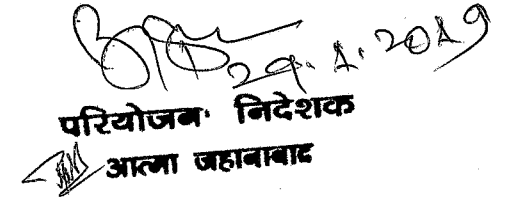 29.1.2019
परियोजना निदेशक
आत्मा जहानाबाद